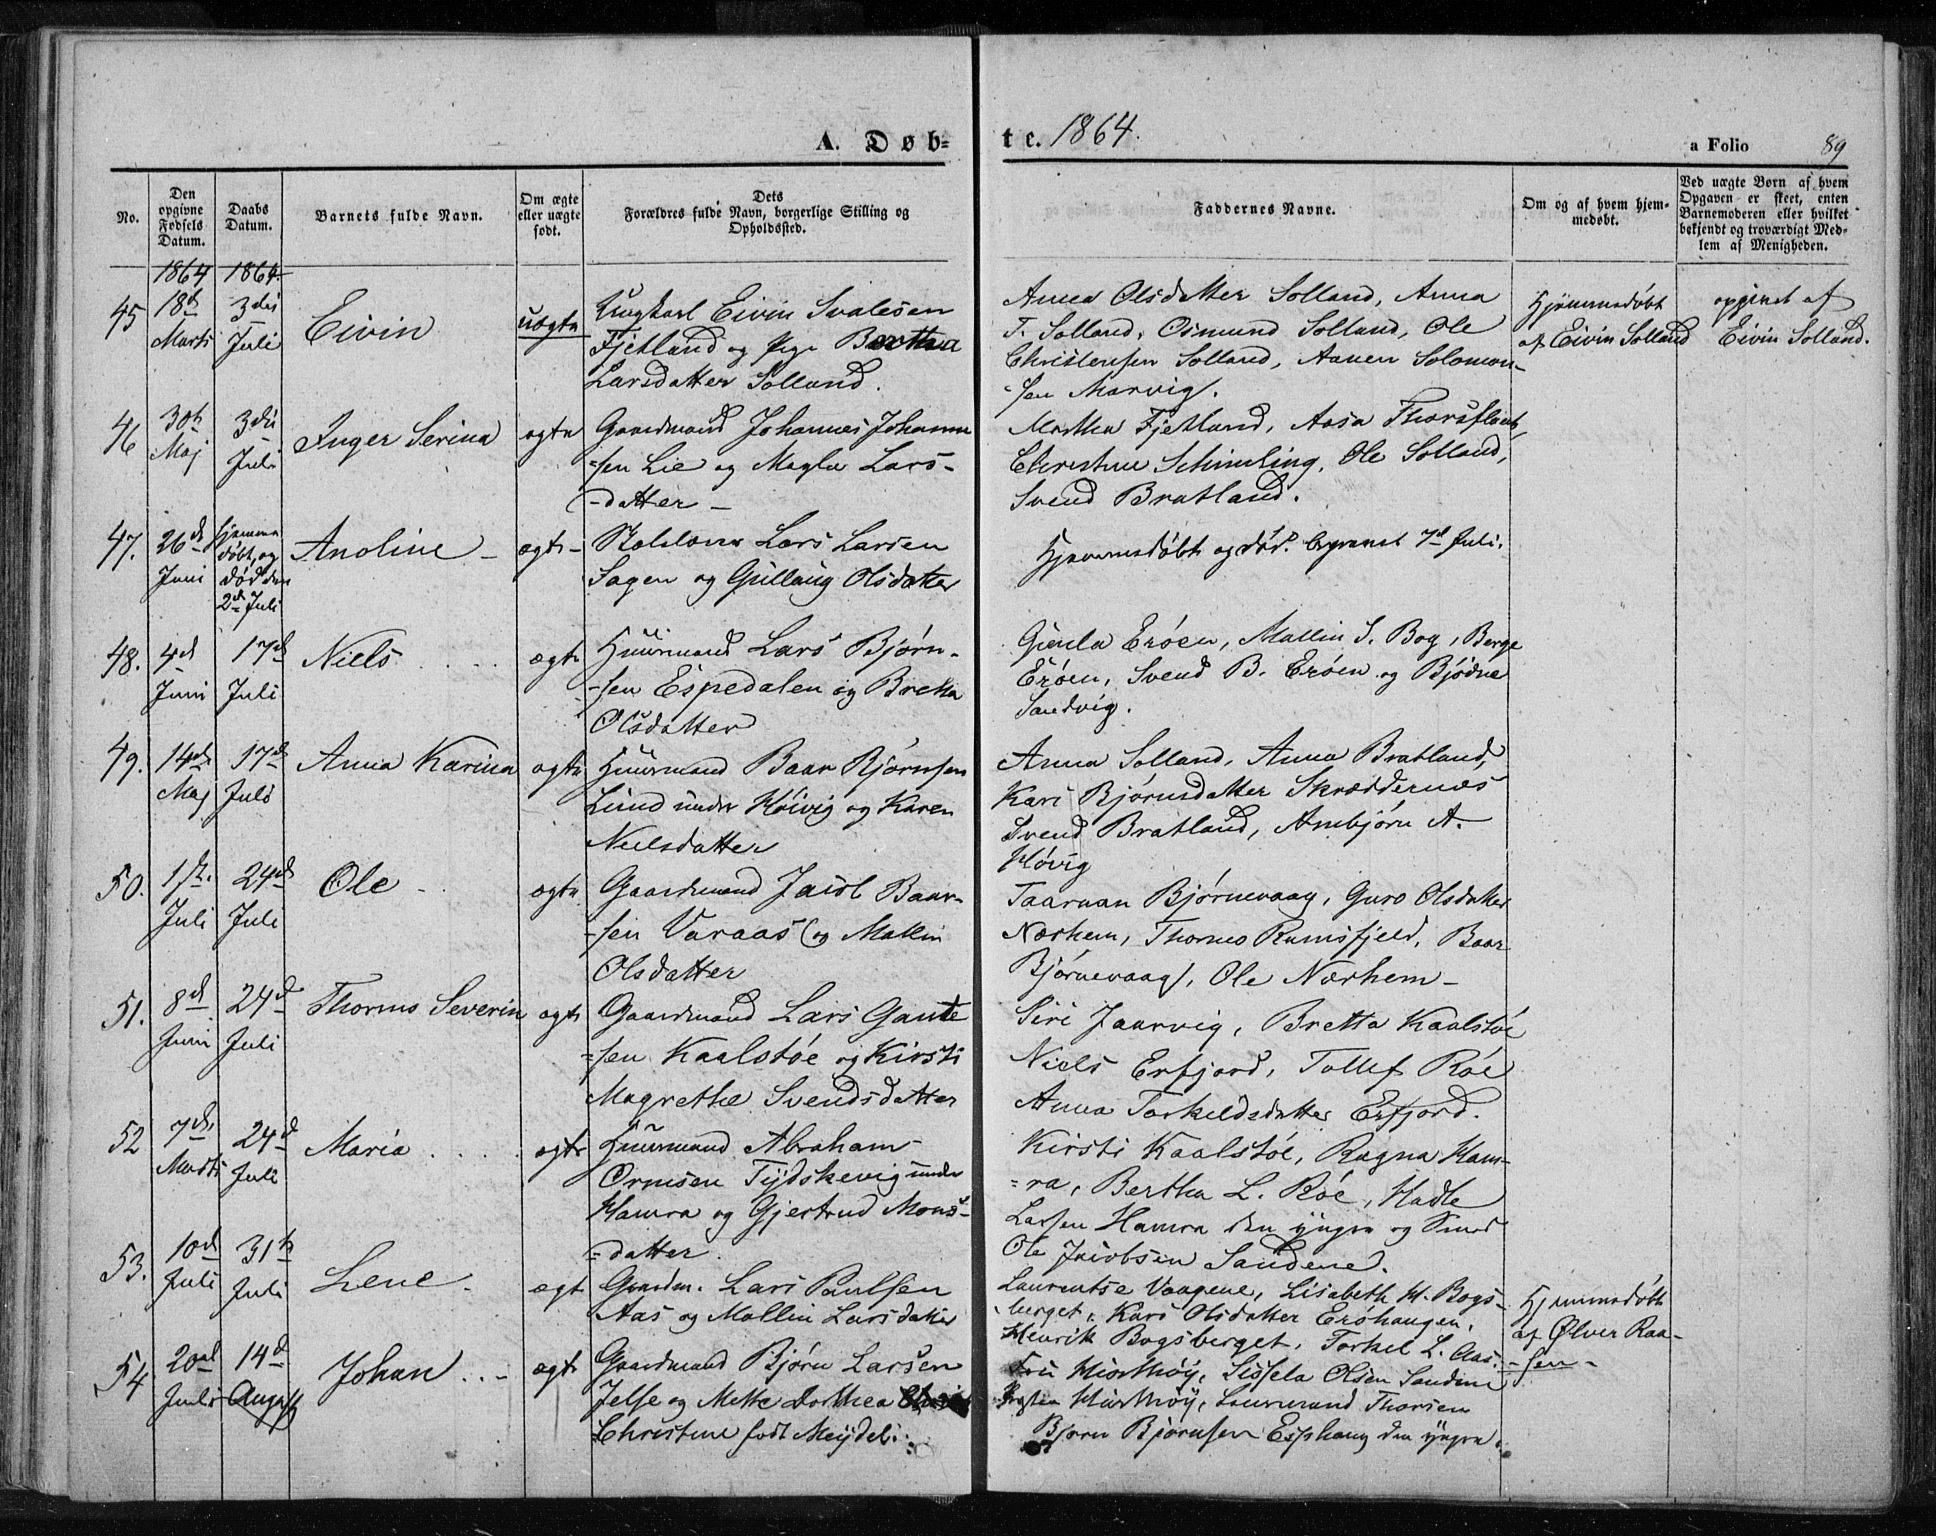 A. Døb-
te. 1864.
a Folio 89
No.
Den opgivne Fødsels Datum.
Daabs Datum.
Barnets fulde Navn.
Om ægte eller uægte født.
Dets Forældres fulde Navn, borgerlige Stilling og Opholdssted.
Faddernes Navne.
Om og af hvem hjemmedøbt.
Ved uægte Børn af hvem Opgaven er skeet, enten Barnemoderen eller hvilket bekjendt og troværdigt Medlem af Menigheden.
1864 1864
45 18d Marts 3die Juli Eivin uægte
Ungkarl Eivin Svalesen
Fjetland og Pige Bertha
Larsdatter Solland.
Anna Olsdatter Solland, Anna
T. Solland, Osmund Solland, Ole
Christensen Solland, Aanen Solomon-
-sen Marvig.
Hjemmedøbt
af Eivin Solland
opgivet af
Eivin Solland.
46 30te Maj 3die Juli Inger Serina ægte
Gaardmand Johannes Johanne
-sen Lie og Magla Lars-
-datter -
Martha Fjetland, Aasa
Solland,
Svend Bratland.
47. 26de Juni Hjemme døbt og død den 2d Juli Anoline - ægte -
Lars Larsen
Sagen og Gullaug Olsdatter
Hjemmedøbt og død. begravet 7d Juli.
48. 4d Juni 17d Juli Niels ægte
Huusmand Lars Bjørn-
-sen Espedalen og Bretha
Olsdatter
Gunla Erøen, Mallin S. Bog, Berge
Erøen, Svend B. Erøen og Bjødne
Sandvig.
49. 14de Maj 17de Juli Anna Karina ægte
Huusmand Baar Bjørnsen
Lund under Høivig og Karen
Nielsdatter
Anna Solland, Anna Bratland,
Kari Bjørnsdatter Skræddernes
Svend Bratland, Ambjørn A.
Høvig
50. 1ste Juli 24de Juli Ole - ægte
Gaardmand Jacob Baar-
-sen Varaas og Mallin
Olsdatter
Taaraan Bjørnevaag, Guro Olsdatter
Nærhem, Thomas Ramsfjeld, Baar
Bjørnevaag, Ole Nærhem -
51. 8d Juni 24d Juli Thomas Severin ægte
Gaardmand Lars Gaute
-sen Kaalstøe og Kirsti
Magrethe Svendsdatter
Siri Jaarvig, Bretta Kaalstøe
Niels Erfjord, Tollef Røe
Anna Torkildsdatter Erfjord.
52 7de Marts 24d Juli Maria ægte
Huusmand Abraham
Ormsen Tydskevig under
Hamra og Gjertrud Mons-
-datter.
Kirsti Kaalstøe, Ragna Ham-
-ra, Bertha L. Røe, Hadle
Larsen Hamra den yngre og Smed
Ole Jacobsen Sandene.
53. 10d Juli 31te Juli Lene - ægte
Gaardm. Lars Paulsen
Aas og Mallin Larsdatter
Laurentse Vaagene, Lisabeth H. Bogs-
-berget, Kari Olsdatter Erøhaugen,
Henrik Bogsberget, Torkel L. Aas.
Hjemmedøbt
af Ølver Raa-
-sen -
54 20de Juli 14d August Johan ægte
Gaardmand Bjørn Larsen
Jelse og Mette Dorthea
Christine født Meydel.
Fru Hiorthøy, Sissela Olsen Sandene
Hiorthøy, Thorsen
Bjørn Bjørnsen Esphaug den yngre.